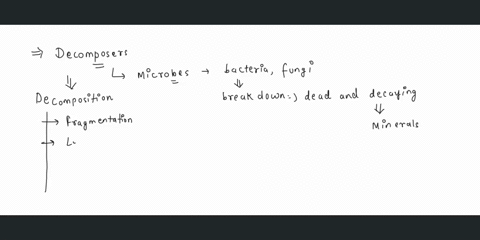 ⇒ Decomposers
↳ Microbes → bacteria, fungi
Decomposition
breakdown:, dead and decaying
→ Fragmentation
Minerals
→ L